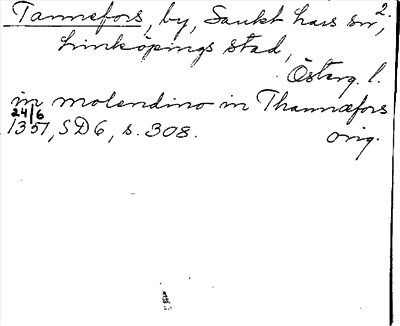 Tannefors, by, Sankt Lars sn, 2.
Linköpings stad,
Österg. l.
in molendino in Thannæfors
24/6
1351, SD6, s. 308. orig.